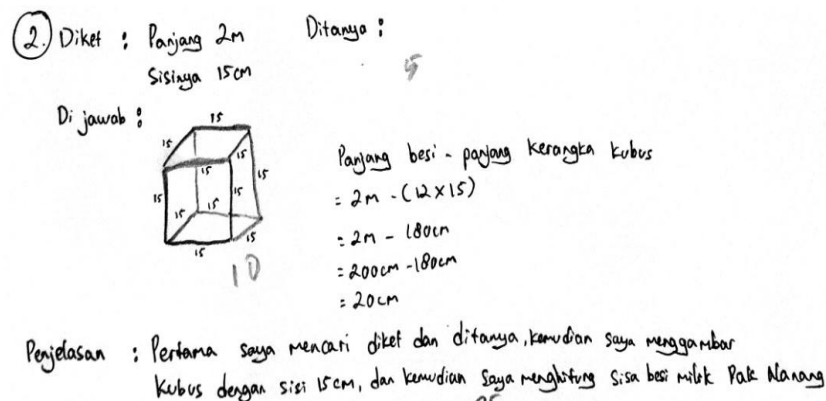 2. Diket : Panjang 2m Ditanya :
Sisinya 15cm
5
Di jawab :
15
15 15
15 15 15 15
15 15
15 15
10
Panjang besi - panjang kerangka kubus
= 2m - (12 x 15)
= 2m - 180cm
= 200cm - 180cm
= 20cm
Penjelasan : Pertama saya mencari diket dan ditanya, kemudian saya menggambar
kubus dengan sisi 15cm, dan kemudian saya menghitung sisa besi milik Pak Nanang